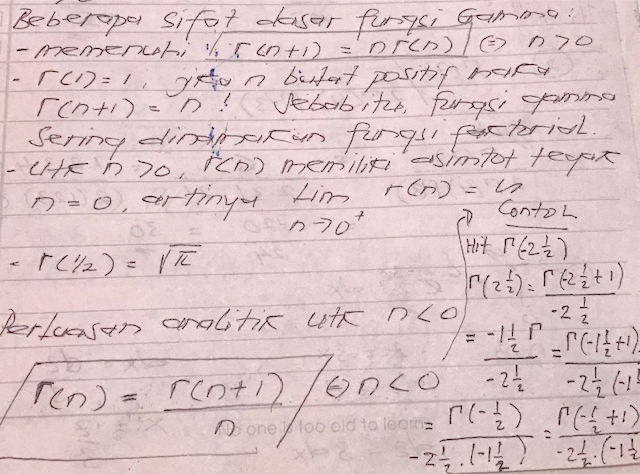 Beberapa sifat dasar fungsi Gamma:
- memenuhi : Γ(n+1) = nΓ(n) ⇔ n>0
- Γ(1)=1, jika n bulat positif maka
Γ(n+1) = n! Sebab itu, fungsi gamma
sering dinamakan fungsi faktorial.
- utk n>0, Γ(n) memiliki asimtot tegak
n=0, artinya lim Γ(n) = ∞
n→0⁺
- Γ(1/2) = √π
Perluasan analitik utk n<0
Γ(n) = Γ(n+1) / n ⇔ n<0
Contoh
Hit Γ(-2 1/2)
Γ(-2 1/2) = Γ(-2 1/2 +1) / -2 1/2
= -1 1/2 Γ / -2 1/2 = Γ(-1 1/2 +1) / -2 1/2 (-1
= Γ(-1/2) / -2 1/2 . (-1 1/2) = Γ(-1/2 +1) / -2 1/2 . (-1 1/2
No one is too old to learn